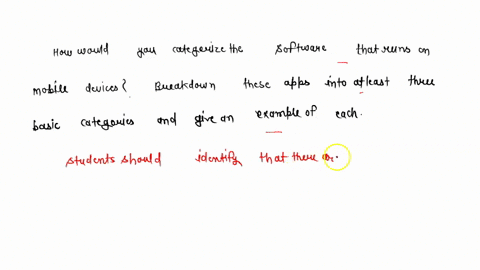 How would you categorize the software that runs on
mobile devices? Breakdown these apps into atleast three
basic categories and give an example of each.
students should identify that there